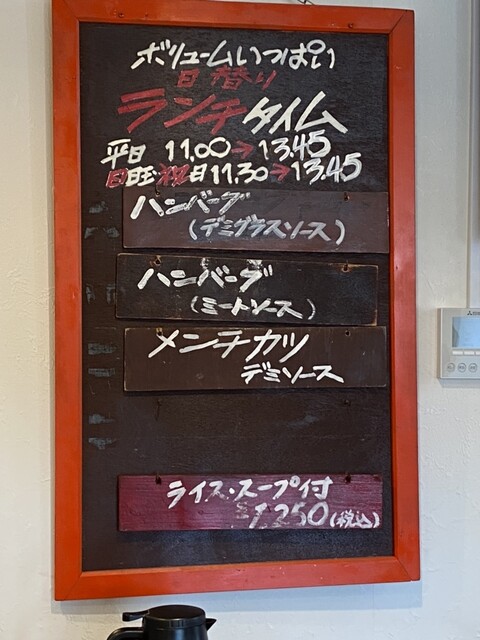 ボリュームいっぱい
日替り
ランチタイム
平日 11.00→13.45
日曜祝日11.30→13.45
ハンバーグ
(デミグラスソース)
ハンバーグ
(ミートソース)
メンチカツ
デミソース
ライス・スープ付
1.250(税込)